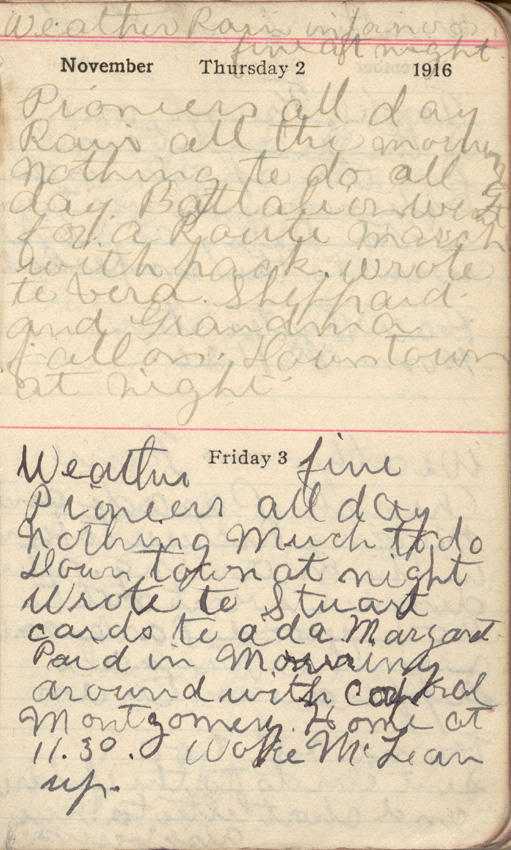 Weather Rain in
fine at night
November Thursday 2 1916
Pioneers all day
Rain all the morning
Nothing to do all
day Battalion went
for a Route March
with pack. wrote
to Vera Sheppard
and Grandma
Fallos. Downtown
at night.
Weather Friday 3 fine
Pioneers all day
Nothing Much to do
Down town at night
Wrote to Stuart
cards to ada Margaret
Paid in Morning
around with Corporal
Montgomery. Home at
11.30. Woke McLean
up.